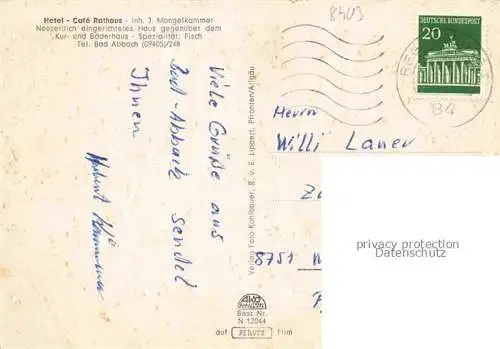 Hotel - Café Rathaus - Inh. J. Mangelkammer
Neuzeitlich eingerichtetes Haus gegenüber dem
Kur- und Bäderhaus - Spezialität: Fisch
Tel. Bad Abbach (09405)/248
8403
DEUTSCHE BUNDESPOST
20
84
Viele Grüße aus
Bad-Abbach sendet
Ihnen
Verlag Foto Kohlbauer, R. v. E. Lippert, Pfronten/Allgäu
Herrn
Willi Laner
8751
privacy protection
Datenschutz
Best. Nr.
N 12044
auf PERUTZ Film